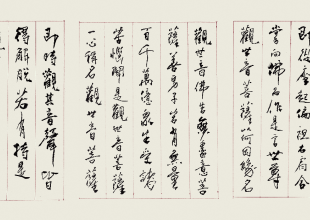 即從座起偏袒右肩合
掌向佛而作是言世尊
觀世音菩薩以何因緣名
觀世音佛告無盡意菩
薩善男子若有無量
百千萬億眾生受諸
苦惱聞是觀世音菩薩
一心稱名觀世音菩薩
即時觀其音聲皆
得解脫若有持是